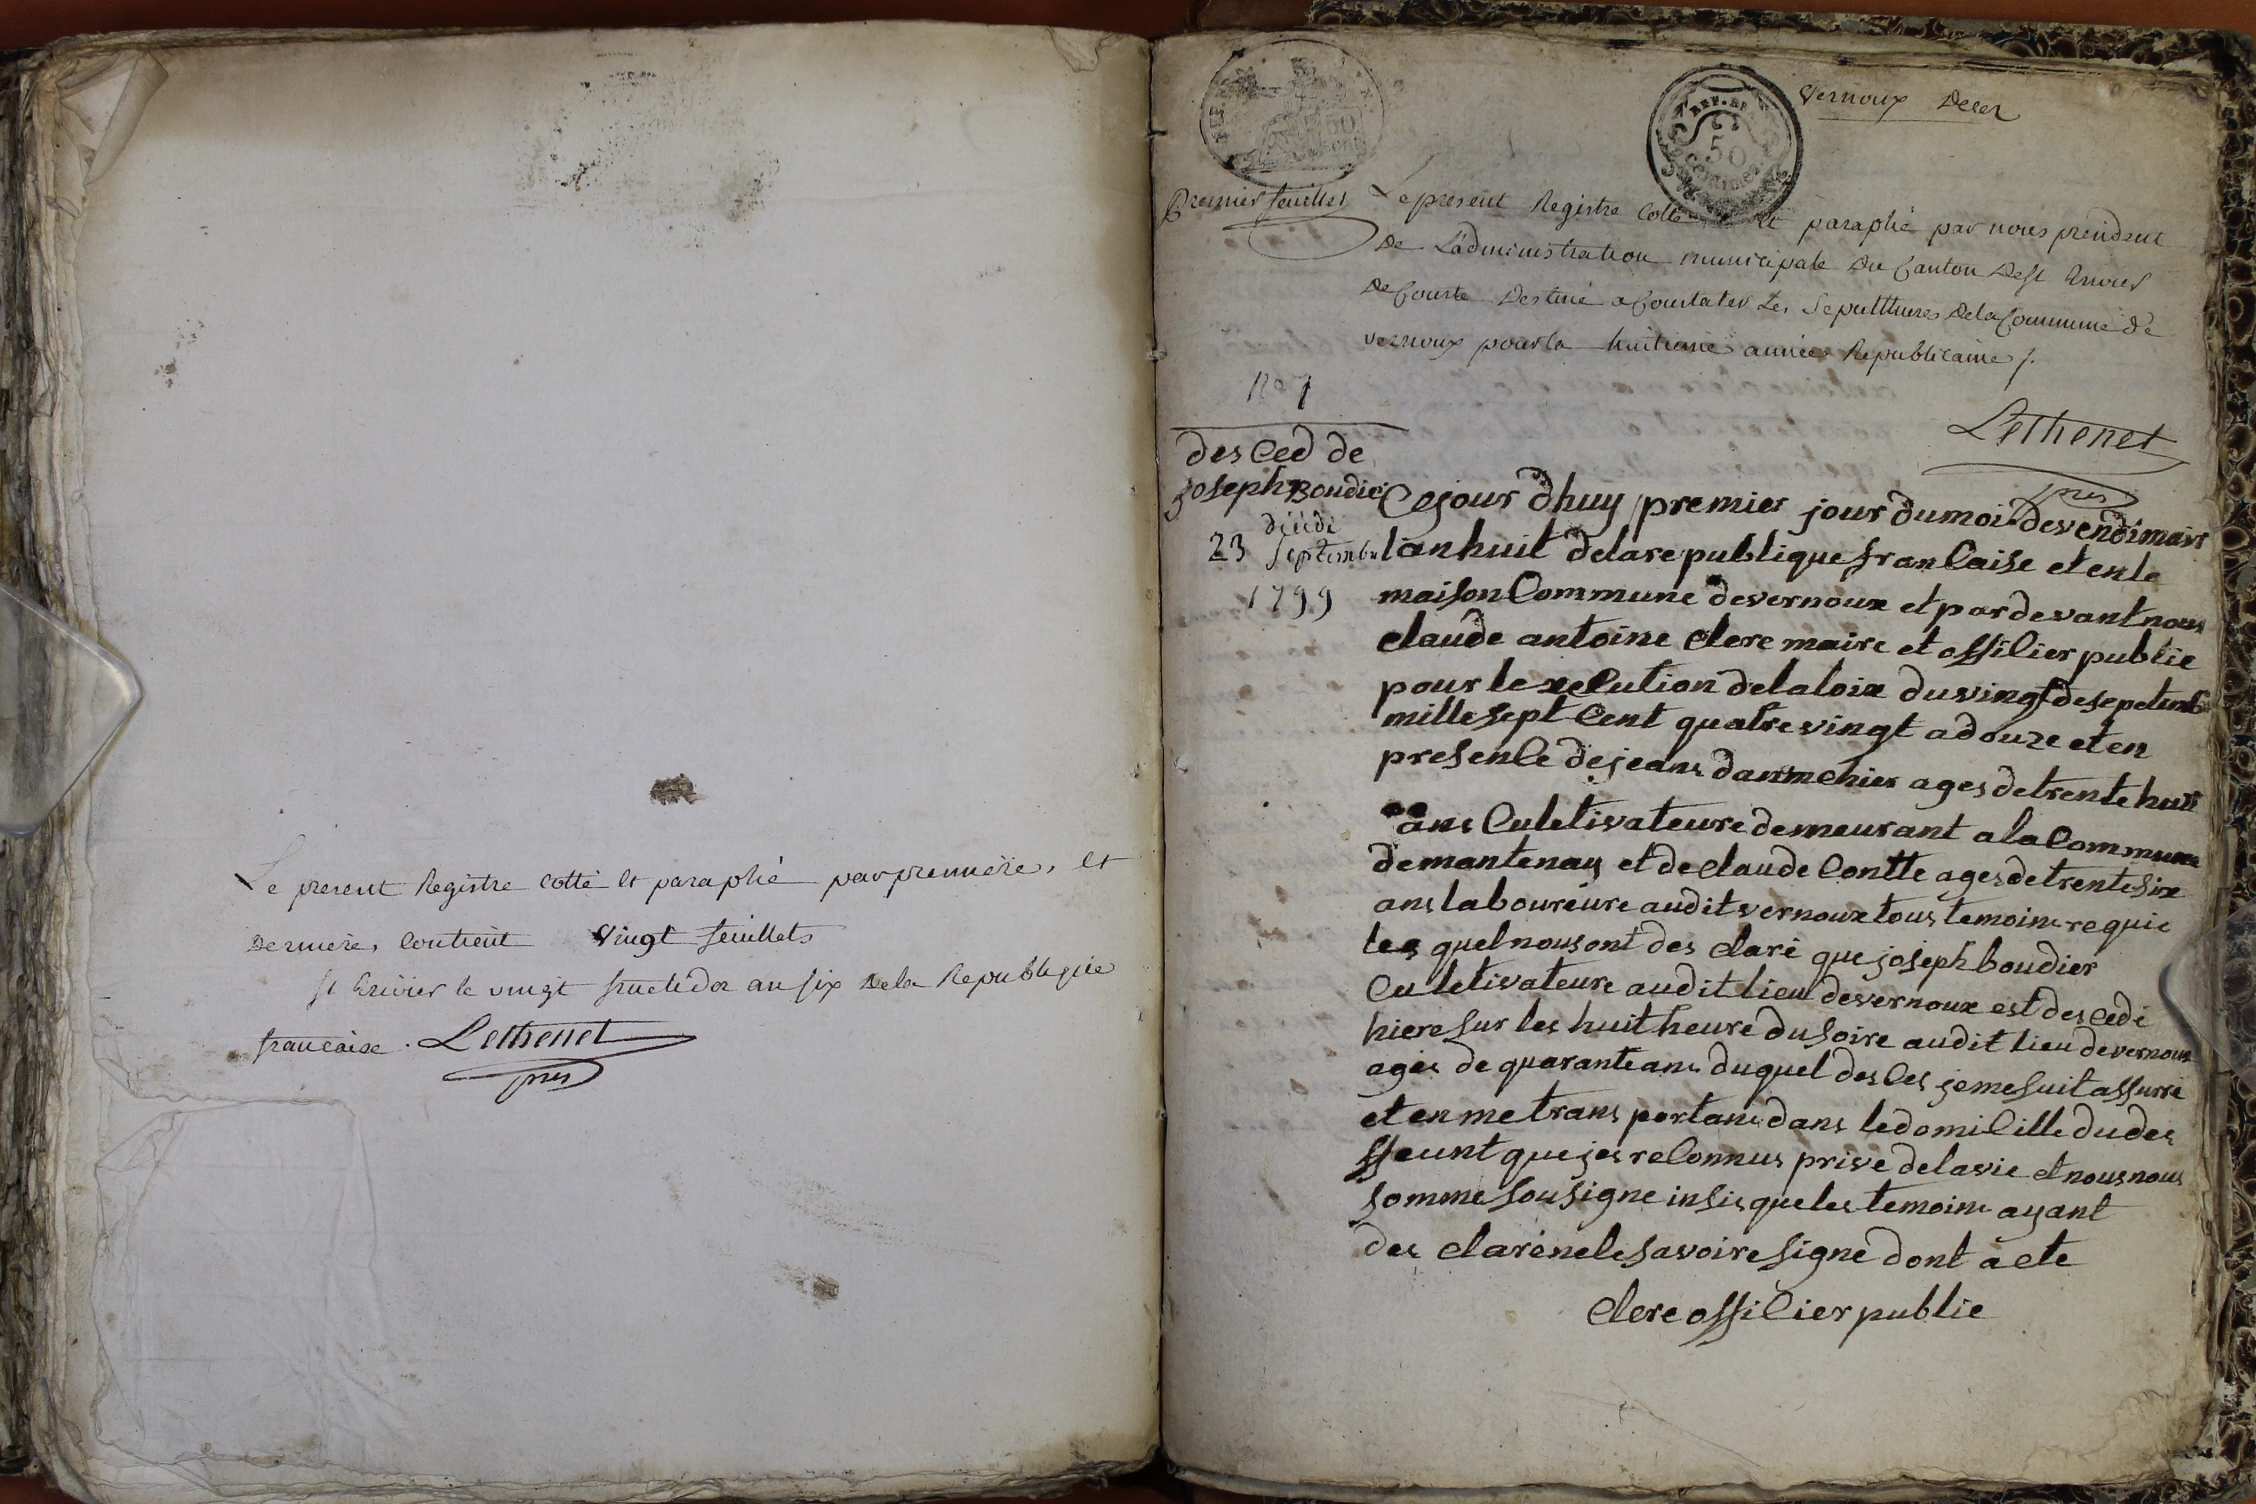 Le present Registre cotté et paraphé par premiere, et
derniere, contient vingt feuillets
St Trivier le vingt fructidor an six de la Republique
francaise. Lethenet
pres
Vernoux Deces
REP. FR
50
Centimes
Premier feuillet
Le present Registre cotté et paraphé par nous president
de L'administration municipale du Canton de St Trivier
de Courte destiné a Constater Les Sepulttures de la Commune de
vernoux pour la huitieme année Republicaine /.
Lethenet
pres
No 1
des Ced de
joseph Boudier
23 Septembre
1799
Cejour dhuy premier jour du moi de vendimair
lan huit dela re publique franCaise et en le
maison Commune de vernoux et par devant nous
claude antoine clerc maire et offiCier public
pour le xeCution de la loix du vingt de sepetemb
mille sept Cent quatre vingt a douze et en
presenCe de jean danmchier ages de trente huit
ans Culetivateure demeurant a la Commune
de mantenay et de claude Contte ages de trente six
ans laboureure audit vernoux tous temoins requie
les quel nous ont des claré que joseph boudier
Culetivateure audit lieu de vernoux est des Cedé
hiere sur les huit heure du soire audit lieu de vernoux
ages de quarante ans duquel des Ces je me suit assurré
et en me trans portans dans le domiCille du des
ffeunt que jes reConnus privé de la vie et nous nous
somme sousigne insis que les temoins ayant
des claré ne le savoire signe dont acte
clerc offiCier public